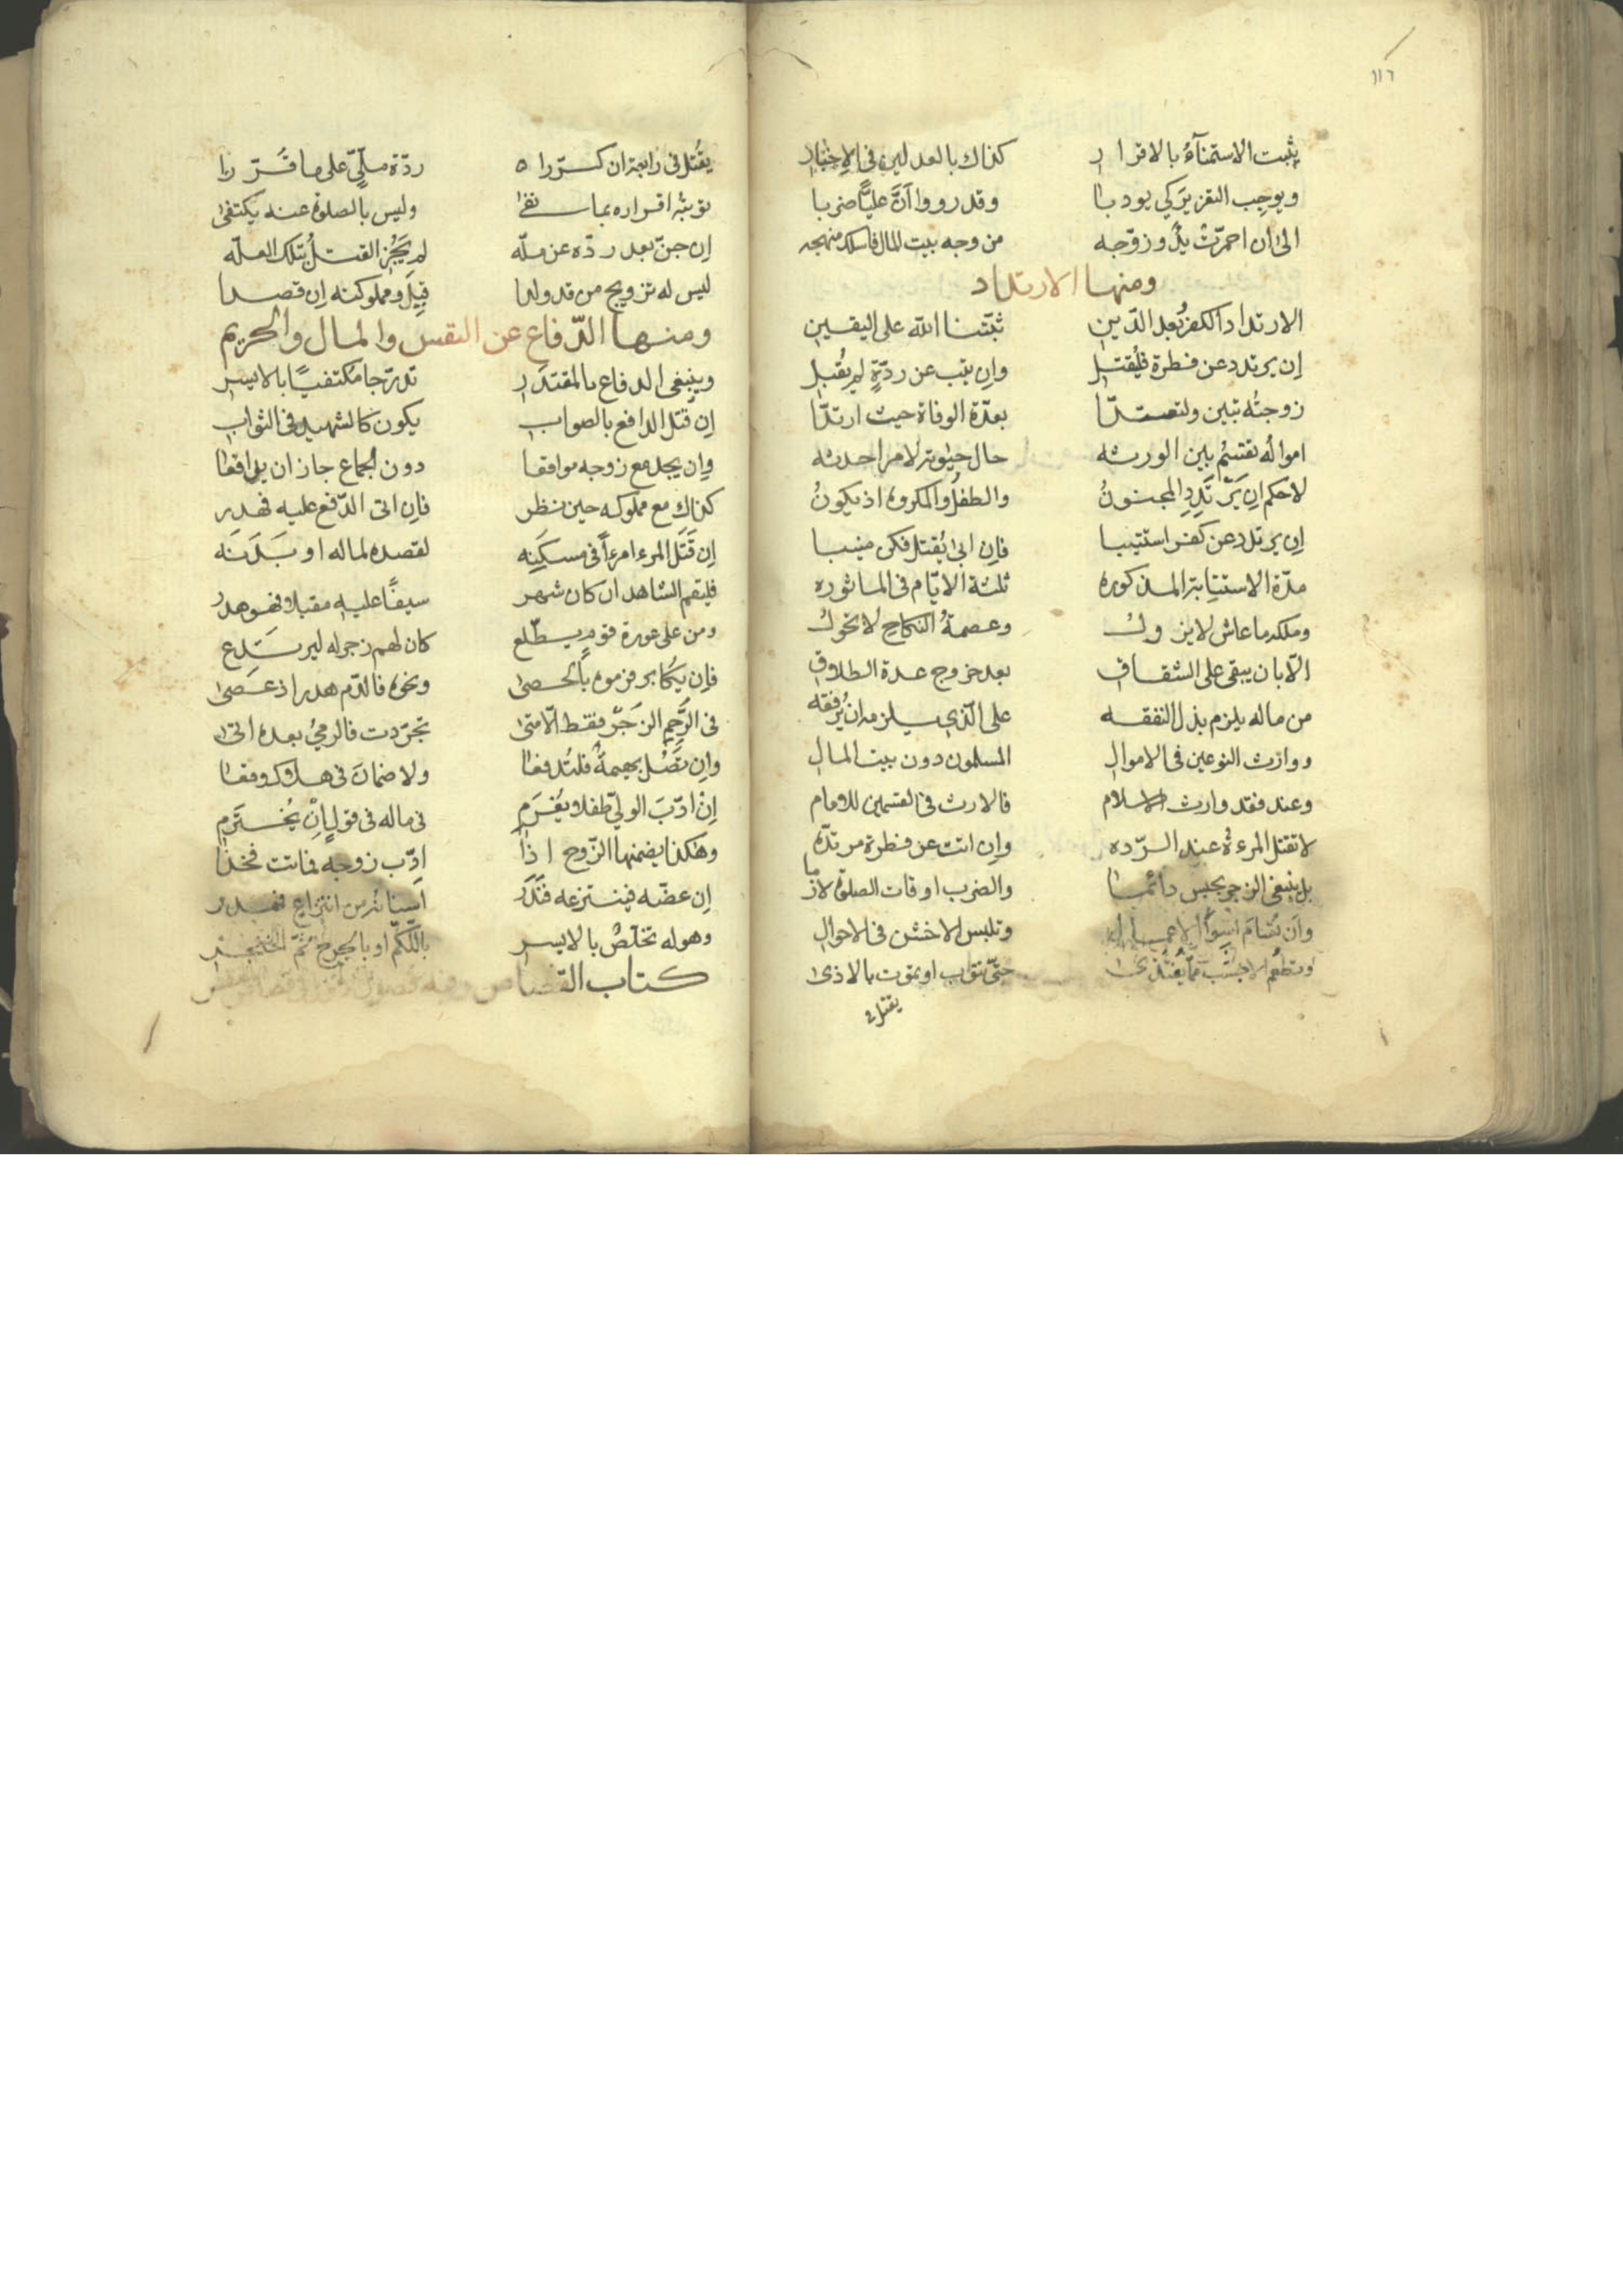 ١١٦
يثبت الاستمنآءُ بالاقرار كذاك بالعدلين في الاِختبار
ويوجب التعزير كي يودبا وقد رووا اَنَّ عليًّا ضربا
الىٰ ان احمرّت يدٌ وزوّجه من وجه بيت المال فاسلك منهجه
ومنها الارتداد
الارتداد الكفرُ بعد الدّين ثبّتنا الله على اليقين
اِن يرتدد عن فطرة فليُقتل واِن يتب عن ردّةٍ لم يُقبل
زوجتُه تبين ولتعتدّا بعدّة الوفاة حيث ارتدّا
اموالُه تقتسم بين الورثه حال حيٰوته لامر احدثه
لا حكم اِن يَرْتَدِدِ المجنونُ والطفلُ والمكروه اذ يكونُ
اِن يرتدد عن كفر استتيبا فاِن ابىٰ يُقتل فكن منيبا
مدّة الاستتابة المذكوره ثلثة الايّام في الماثوره
وملكه ما عاش لا يزول وعصمةُ النكاحِ لا تحول
الّا بان يبقى على الشقاق بعد خروج عدة الطلاق
من ماله يلزم بذل النفقه على الّذي يلزمه ان يُرفقه
ووارث النوعين في الاموالِ المسلمون دون بيت المالِ
وعند فقد وارث الاسلام فالارث في القسمين للامام
لا تقتل المرءة عند الرّده واِن اتت عن فطرة مرتدّه
بل ينبغي الزجر بحبس دائما والضرب اوقات الصلوٰة لازما
واَن تُسامَ اَسْوَأَ الاعمال وتلبس الاخشن في الاحوالِ
وتطعم الاجشب ممّا يُغتذىٰ حتّى تتوب او تموت بالاذىٰ
يقتل في
يقُتل في رابعة ان كرّرا ردّة ملّيّ على ما قَرّرا
توبته اقراره بما نفىٰ وليس بالصلوٰة عنه يكتفىٰ
اِن جنّ بعد ردّه عن ملّه لم يَجُزِ القتلُ بتلك العلّه
ليس له تزويج من قد ولدا قِيلَ ومملوكته اِن قصدا
ومنها الدّفاع عن النفس والمال والحريم
وينبغي الدفاع بالمقتدَر تدرّجا مكتفيًا بالايسر
اِن قُتل الدافع بالصواب يكون كالشهيد في الثوابِ
واِن يجد مع زوجه مواقعا دون الجماع جاز ان يدافعا
كذاك مع مملوكه حين نظر فاِن اتى الدّفع عليه فهدر
اِن قَتَلَ المرء امرءاً في مسكَنِه لقصده لماله او بَدَنَه
فليقم الشاهد ان كان شهر سيفًا عليه مقبلا فهو هدر
ومن على عورة قوم يطّلع كان لهم زجر له ليرتدع
فاِن يُكابر فرموه بالحصىٰ ونحوه فالدّم هدر اذ عَصىٰ
في الرَّحِمِ الزَجرُ فقط الّا متىٰ تجرّدت فالرميُ بعده اتىٰ
واِن تَصُلْ بهيمةٌ فلتُدفعا ولا ضمانَ في هلاك وقعا
اِنْ ادّبَ الوليّ طفلا ويُغْرَم في ماله في قولٍ اِنْ يُختَرَم
وهكذا يضمنها الزّوج اذا ادّب زوجه فماتت فخذا
اِن عضّه فينتزعه فَنَدَر اَسنانُه من انتزاع فهدر
وهو له تخلّصٌ بالايسر باللّكم او بالجرح ثمّ الخنجر
كتاب القصاص وفيه فصول